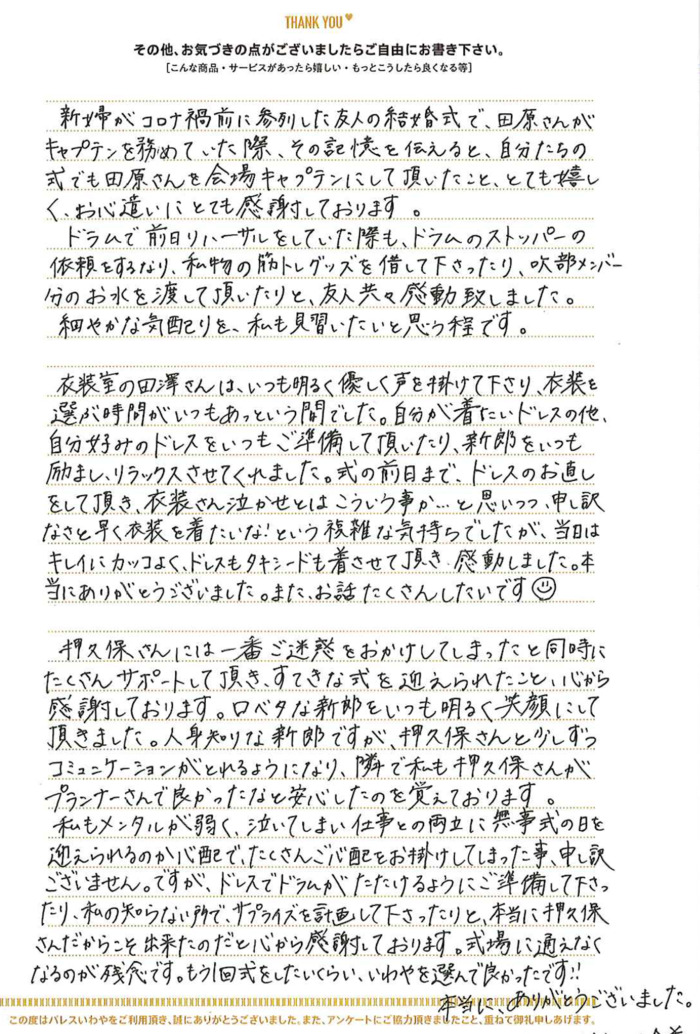 THANK YOU
その他、お気づきの点がございましたらご自由にお書き下さい。
[こんな商品・サービスがあったら嬉しい・もっとこうしたら良くなる等]
新婦がコロナ禍前に参列した友人の結婚式で、田原さんが
キャプテンを務めていた際、その記憶を伝えると、自分たちの
式でも田原さんを会場キャプテンにして頂いたこと、とても嬉し
く、お心遣いにとても感謝しております。
ドラムで前日リハーサルをしていた際も、ドラムのストッパーの
依頼をするなり、私物の筋トレグッズを借して下さったり、吹部メンバー
分のお水を渡して頂いたりと、友人共々感動致しました。
細やかな気配りを、私も見習いたいと思う程です。
衣装室の田澤さんは、いつも明るく優しく声を掛けて下さり、衣装を
選ぶ時間がいつもあっという間でした。自分が着たいドレスの他、
自分好みのドレスをいつもご準備して頂いたり、新郎をいつも
励まし、リラックスさせてくれました。式の前日まで、ドレスのお直し
をして頂き、衣装さん泣かせとはこういう事か…と思いつつ、申し訳
なさと早く衣装を着たいな!という複雑な気持ちでしたが、当日は
キレイにカッコよく、ドレスもタキシードも着させて頂き、感動しました。本
当にありがとうございました。また、お話たくさんしたいです☺
押久保さんには一番ご迷惑をおかけしてしまったと同時に
たくさんサポートして頂き、すてきな式を迎えられたこと、心から
感謝しております。口ベタな新郎をいつも明るく笑顔にして
頂きました。人身知りな新郎ですが、押久保さんと少しずつ
コミュニケーションがとれるようになり、隣で私も押久保さんが
プランナーさんで良かったなと安心したのを覚えております。
私もメンタルが弱く、泣いてしまい仕事との両立に無事式の日を
迎えられるのか心配で、たくさんご心配をお掛けしてしまった事、申し訳
ございません。ですが、ドレスでドラムがたたけるようにご準備して下さっ
たり、私の知らない所で、サプライズを計画して下さったりと、本当に押久保
さんだからこそ出来たのだと心から感謝しております。式場に通えなく
なるのが残念です。もう1回式をしたいくらい、いわやを選んで良かったです!!
本当に、ありがとうございました。
この度はパレスいわやをご利用頂き、誠にありがとうございました。また、アンケートにご協力頂きましたこと、重ねて御礼申しあげます。